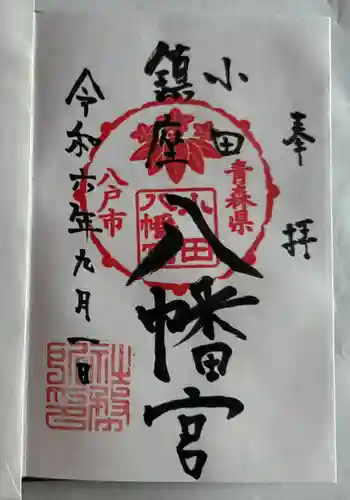 奉拝
小田
鎮座
八幡宮
令和六年九月一日
青森県
八戸市
小田
八幡宮
社務
所印